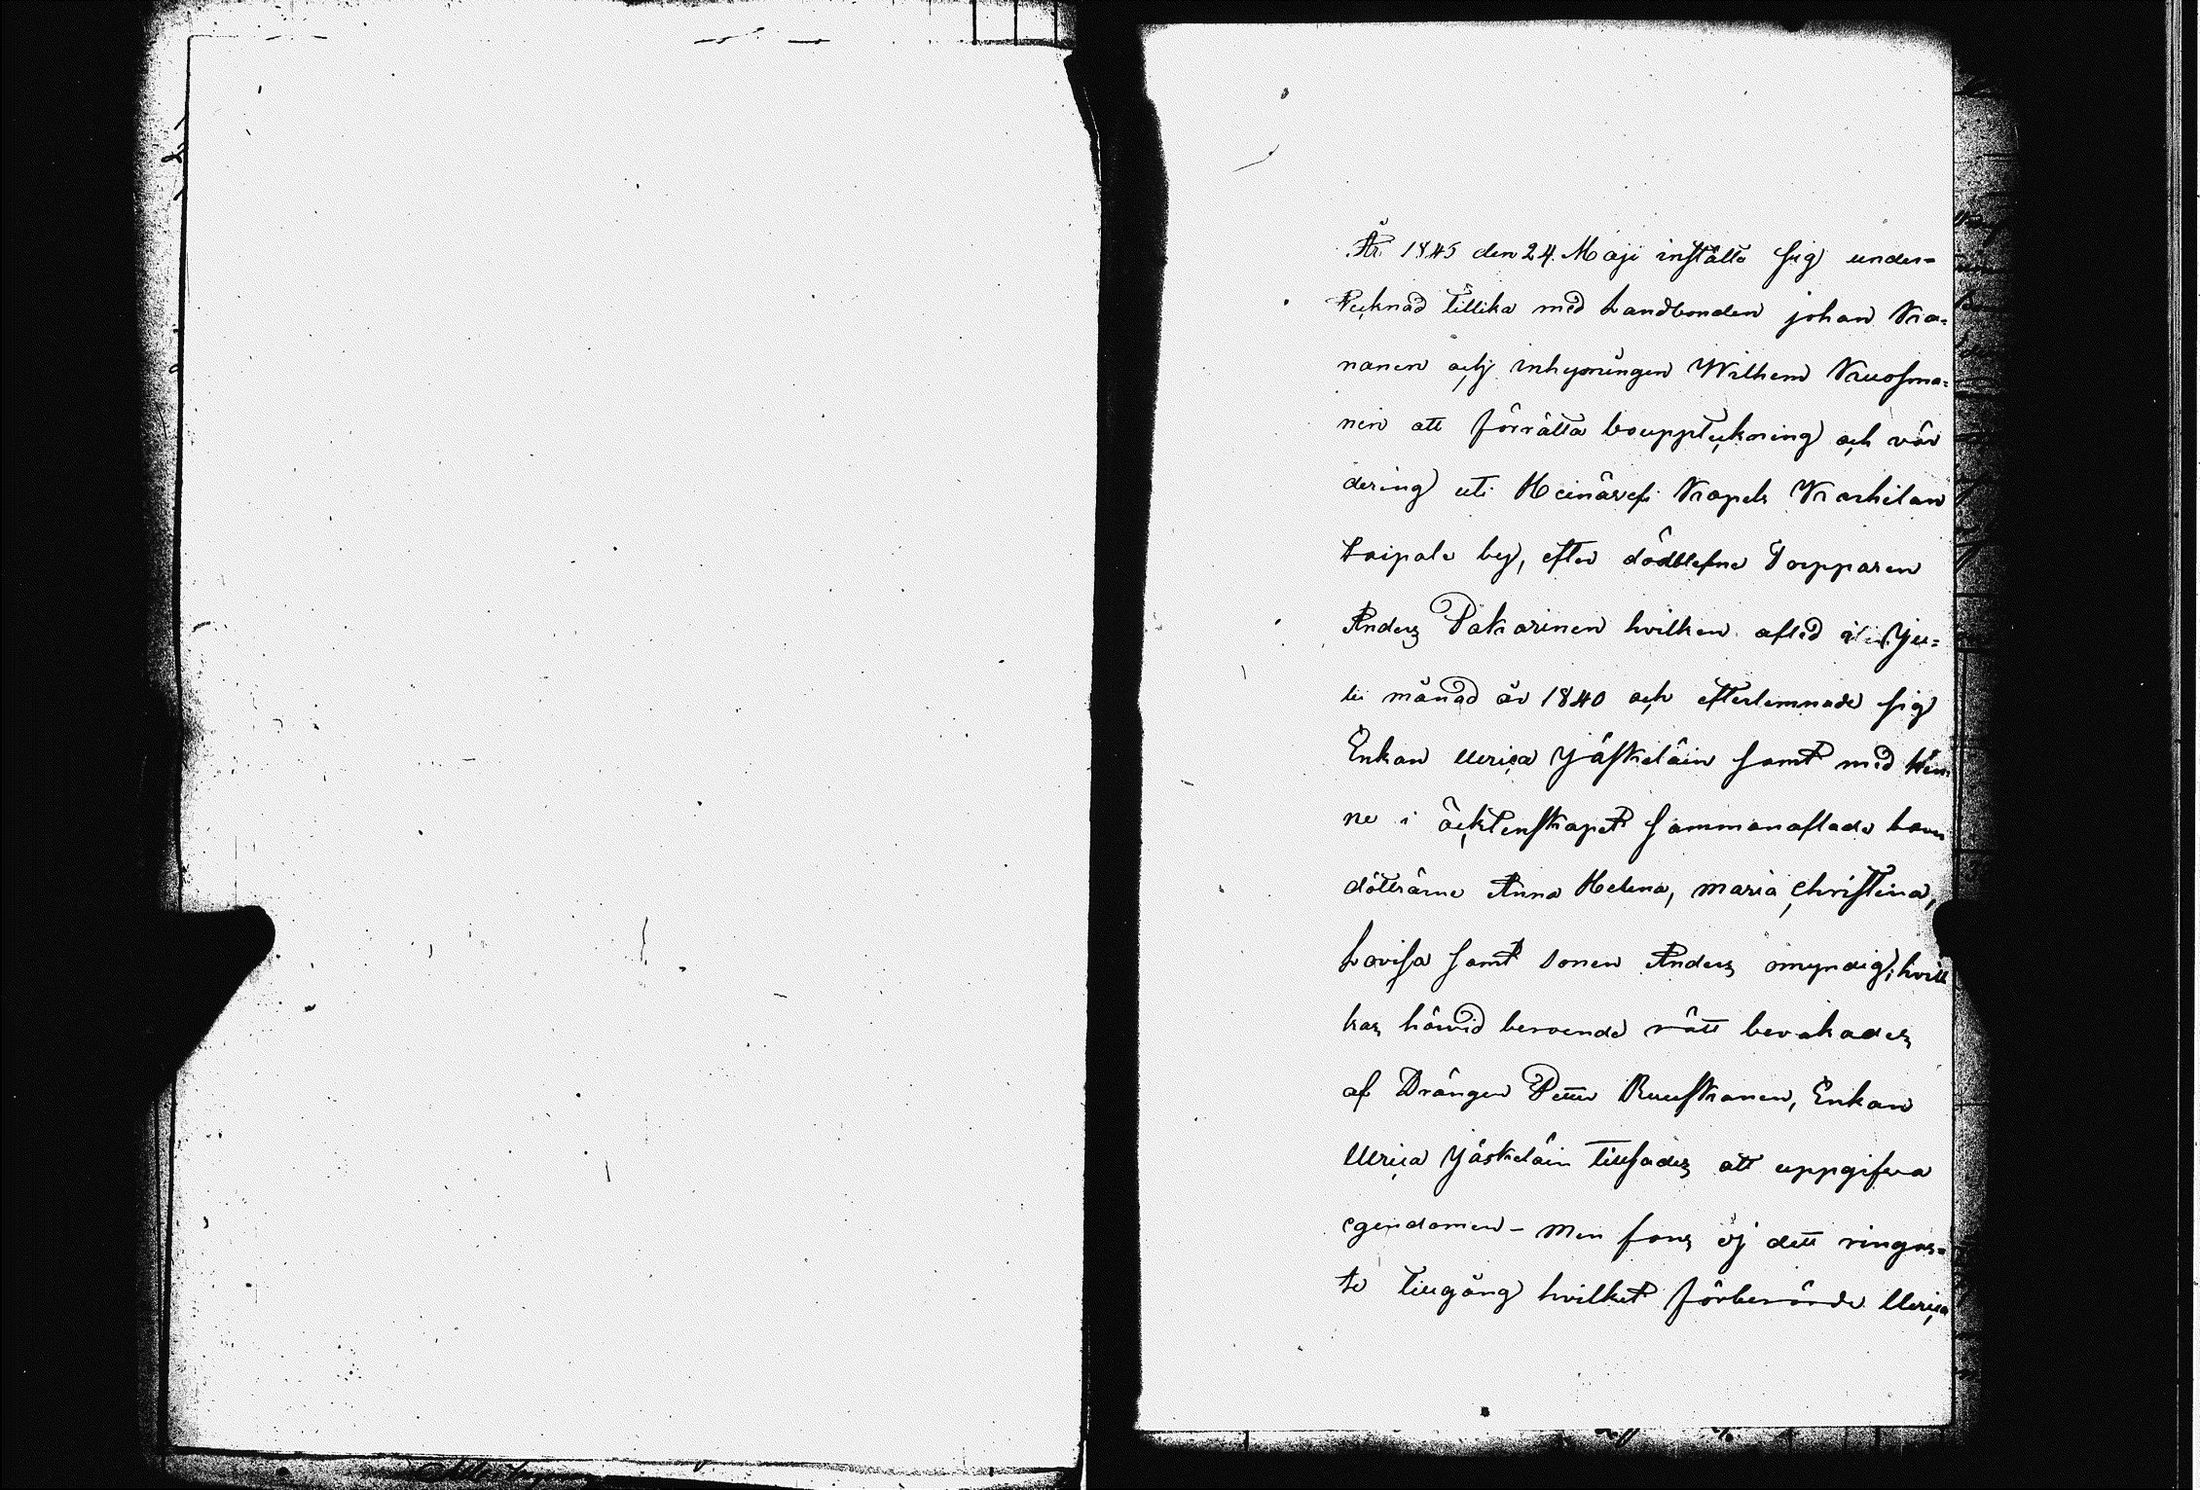 År 1845 den 24 Maji instälte sig under-
tecknad tillika med Landbonden johan Kna-
nanen och inhysningen Wilhem Kruosma-
nen att förrätta bouppteckning och vär
dering uti Heinäves Kapels Karhilan
taipale by, efter dödblefne Torpparen
Anders Pakarinen hvilken afled i Ju-
lii månad år 1840 och efterlemnade sig
Enkan Ulrica Jäskeläin samt med hen
ne i äcktenskapet sammanaflade barn
döttrarne Anna Helena, maria, christina,
Lovisa samt sonen Anders omyndig, hvil
kas härvid beroende rätt bevakades
af Drängen Petter Ruuskanen, Enkan
Ulrica Jäskeläin tillsades att uppgifva
egendomen - men fans ej dett ringas-
te tillgång hvilket förberörde Ulrica